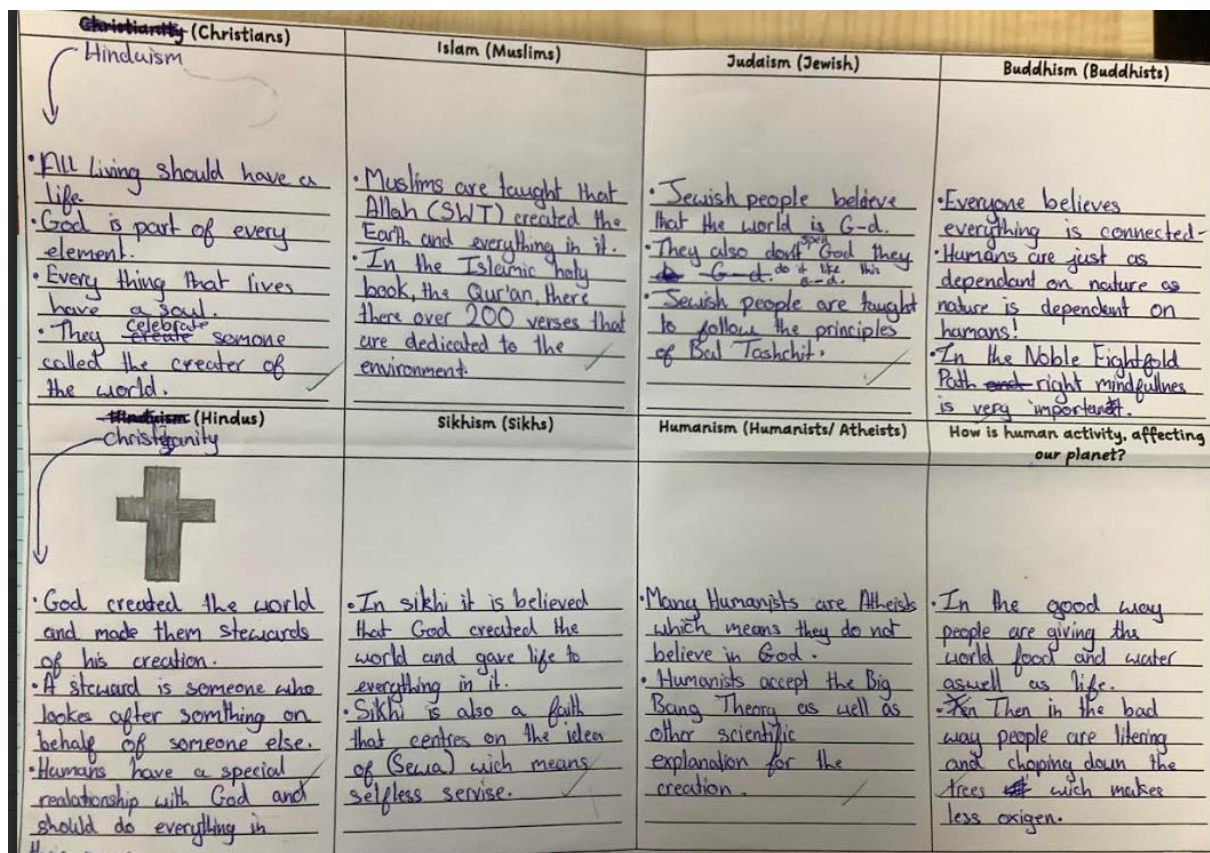 Christianity (Christians)
Hinduism
All Living should have a
life.
God is part of every
element.
Every thing that lives
have a soul.
celebrate
They create somone
called the creater of
the world.
Islam (Muslims)
Muslims are taught that
Allah (SWT) created the
Earth and everything in it.
In the Islamic holy
book, the Qur'an, there
there over 200 verses that
are dedicated to the
environment.
Judaism (Jewish)
Jewish people beleive
that the world is G-d.
spell
They also dont God they
G-d. do it like this
G-d.
Jewish people are taught
to follow the principles
of Bal Tashchit.
Buddhism (Buddhists)
Everyone believes
everything is connected-
Humans are just as
dependant on nature as
nature is dependent on
humans!
In the Noble Eightfold
Path and right mindfullnes
is very important.
Hinduism (Hindus)
Christianity
God created the world
and made them stewards
of his creation.
A steward is someone who
lookes after somthing on
behalf of someone else.
Humans have a special
realationship with God and
should do everything in
Sikhism (Sikhs)
In sikhi it is believed
that God created the
world and gave life to
everything in it.
Sikhi is also a faith
that centres on the idea
of (Sewa) wich means
selfless servise.
Humanism (Humanists/ Atheists)
Many Humanists are Atheists
which means they do not
believe in God.
Humanists accept the Big
Bang Theory as well as
other scientific
explanation for the
creation.
How is human activity, affecting
our planet?
In the good way
people are giving the
world food and water
aswell as life.
Then in the bad
way people are litering
and choping down the
trees wich makes
less oxigen.